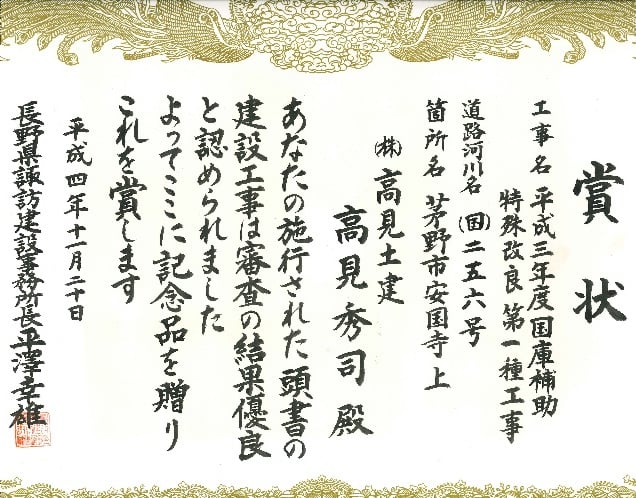 賞状
工事名 平成三年度国庫補助
特殊改良第一種工事
道路河川名 (国)二五六号
箇所名 茅野市安国寺上
㈱高見土建
高見秀司殿
あなたの施行された頭書の
建設工事は審査の結果優良
と認められました
よってここに記念品を贈り
これを賞します
平成四年十一月二十日
長野県諏訪建設事務所長平澤幸雄